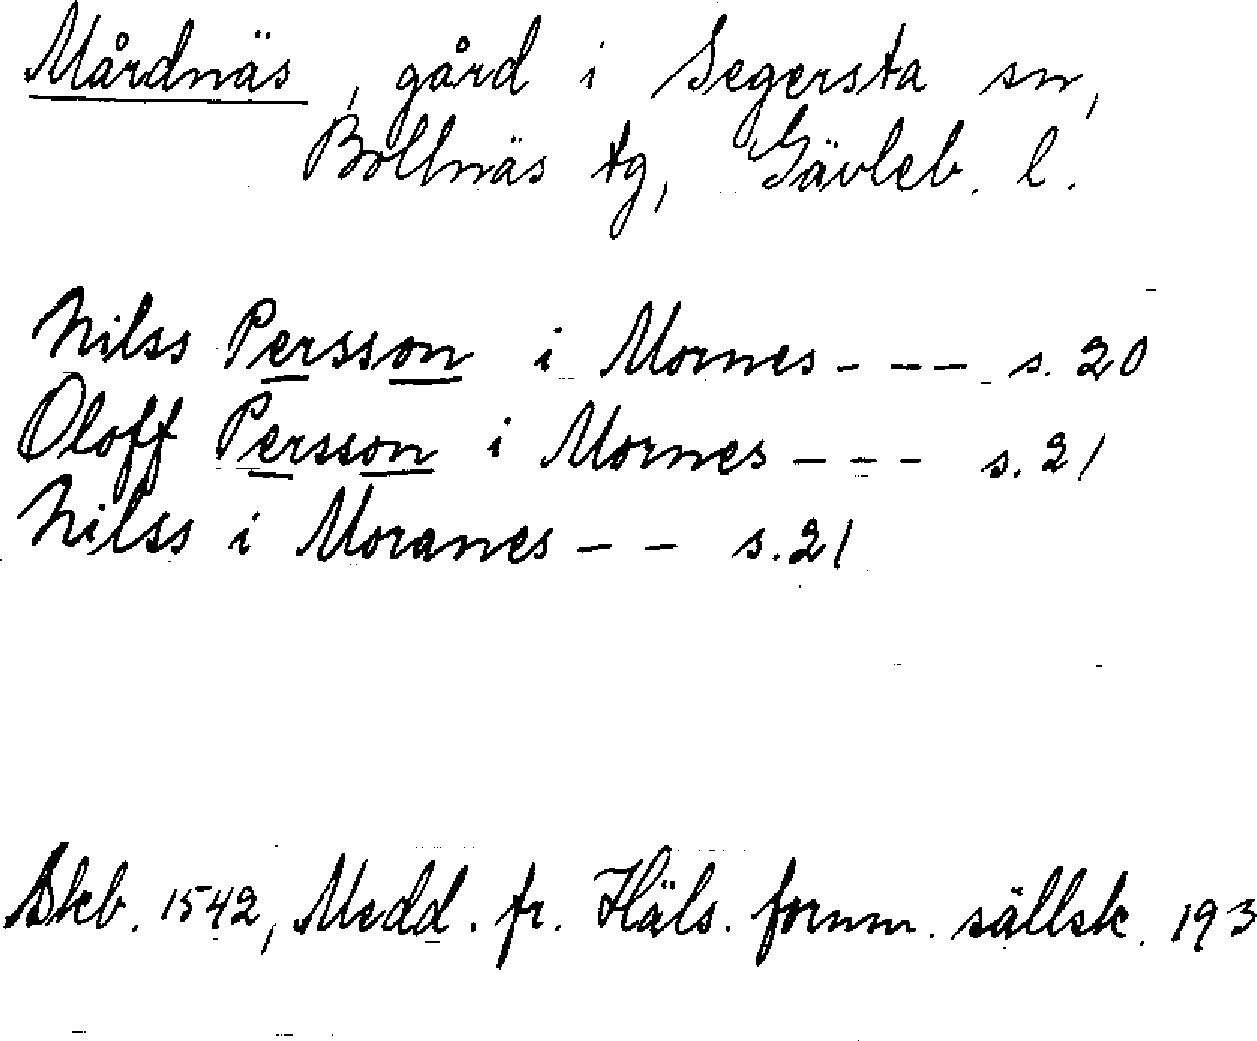 Mårdnäs, gård i Segersta sn,
Bollnäs tg, Gävleb. l.
Nilss Persson i Mornes - - - - s. 20
Oloff Persson i Mornes - - - s. 21
Nilss i Moranes - - s. 21
Skb. 1542, Medd. fr. Häls. fornm. sällsk. 193